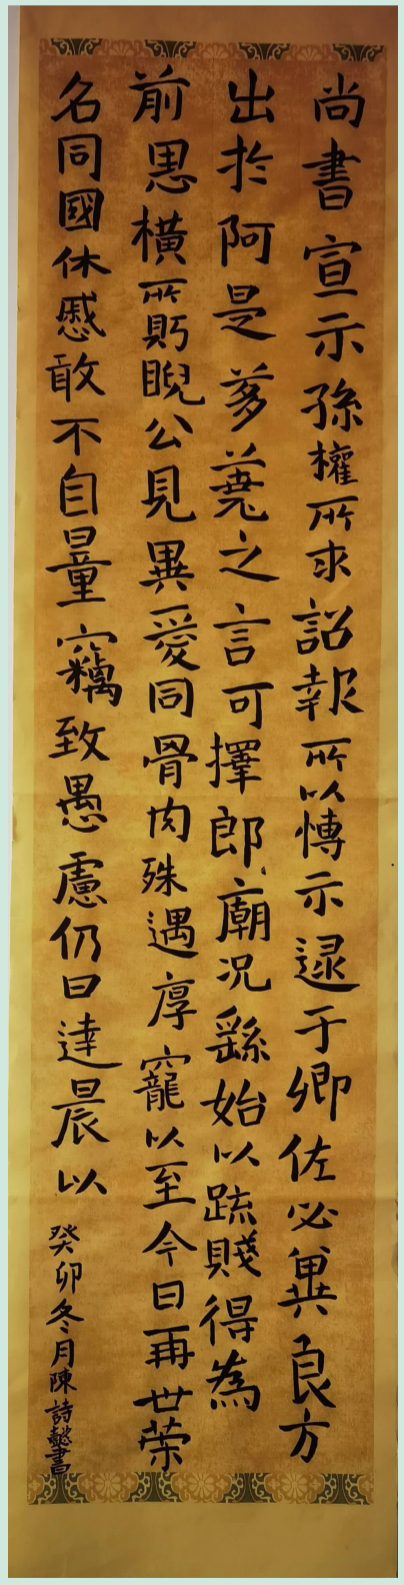 尚書宣示孫權所求詔報所以博示逮于卿佐必冀良方
出於阿是芻蕘之言可擇郎廟況繇始以疏賤得為
前恩橫所眄睨公私見異愛同骨肉殊遇厚寵以至今日再世荣
名同國休慼敢不自量竊致愚慮仍日達晨以
癸卯冬月陳詩懿書